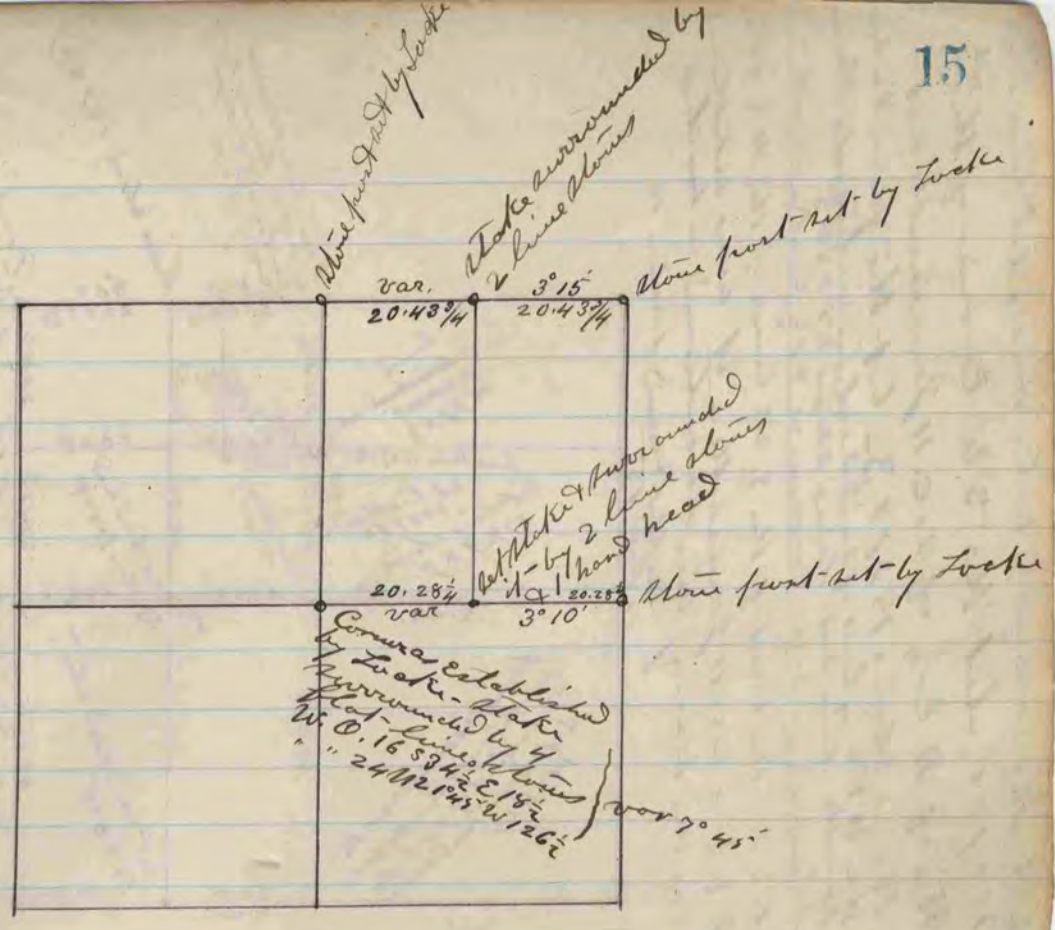 15
Stone post set by Locke
Stake surrounded by
2 lime stones
Stone post set by Locke
var. 3° 15'
20.43 3/4 20.43 3/4
Set stake & surrounded
it by 2 lime stones
& 1 hard head
Stone post set by Locke
20.28 1/4 20.28 1/4
var 3° 10'
Corner as Established
by Locke - stake
surrounded by 4
flat lime stones
W. O. 16 S 34 1/2 E 18 1/2
" " 24 N 21° 45' W 126 1/2
var 7° 45'